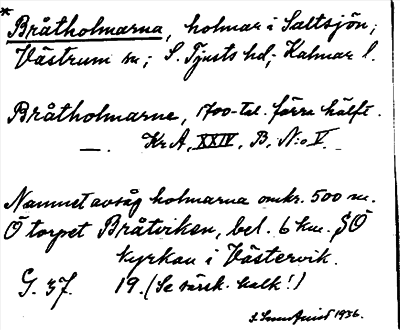 * Bråtholmarna, holmar i Saltsjön;
Västrum sn; S. Tjusts hd; Kalmar l.
Bråtholmarne, 1700-tal. förra hälft.
— . Kr A, XXIV, B, N:o V.
Namnet avsåg holmarna omkr. 500 m.
Ö torpet Bråtviken, bel. 6 km. SÖ
kyrkan i Västervik.
G. 37. 19. (Se särsk. kalk!)
1936.